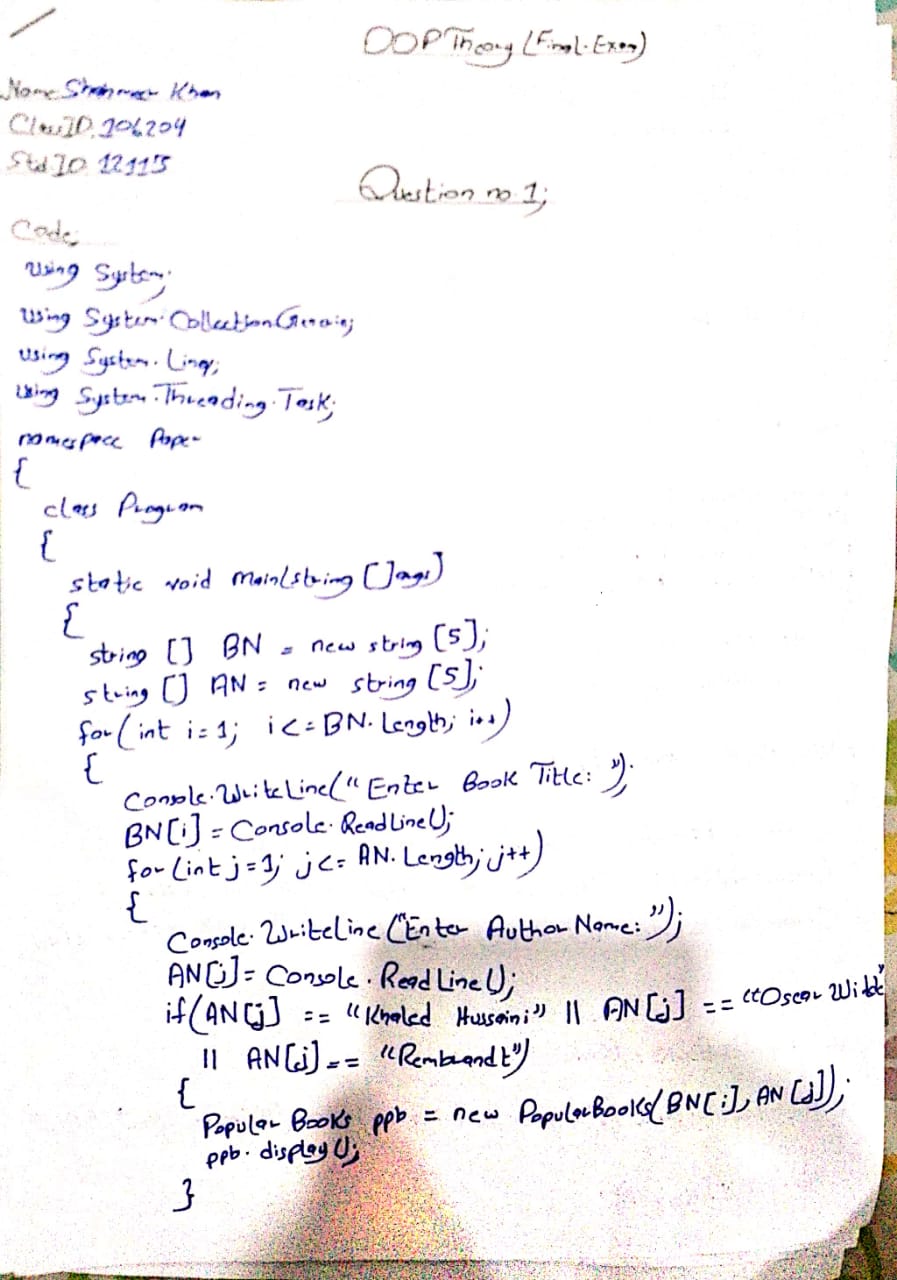 OOP Theory (Final-Exam)
Name Shahmeer Khan
Class ID. 106204
Std ID 12115
Question no 1;
Code;
using System;
using System.Collection Generic;
using System. Linq;
using System.Threading.Task;
namespace Paper
{
class Program
{
static void Main(string []args)
{
string [] BN = new string [5];
string [] AN = new string [5];
for(int i=1; i<=BN.Length; i++)
{
Console.WriteLine("Enter Book Title: ");
BN[i] = Console.ReadLine();
for(int j=1; j<= AN.Length; j++)
{
Console.WriteLine("Enter Author Name: ");
AN[j]= Console.ReadLine();
if(AN[j] == "Khaled Hussaini" || AN[j] == "Oscar Wilde"
|| AN[j] == "Rembrandt")
{
Popular Books ppb = new PopularBooks(BN[i], AN[j]);
ppb.display();
}